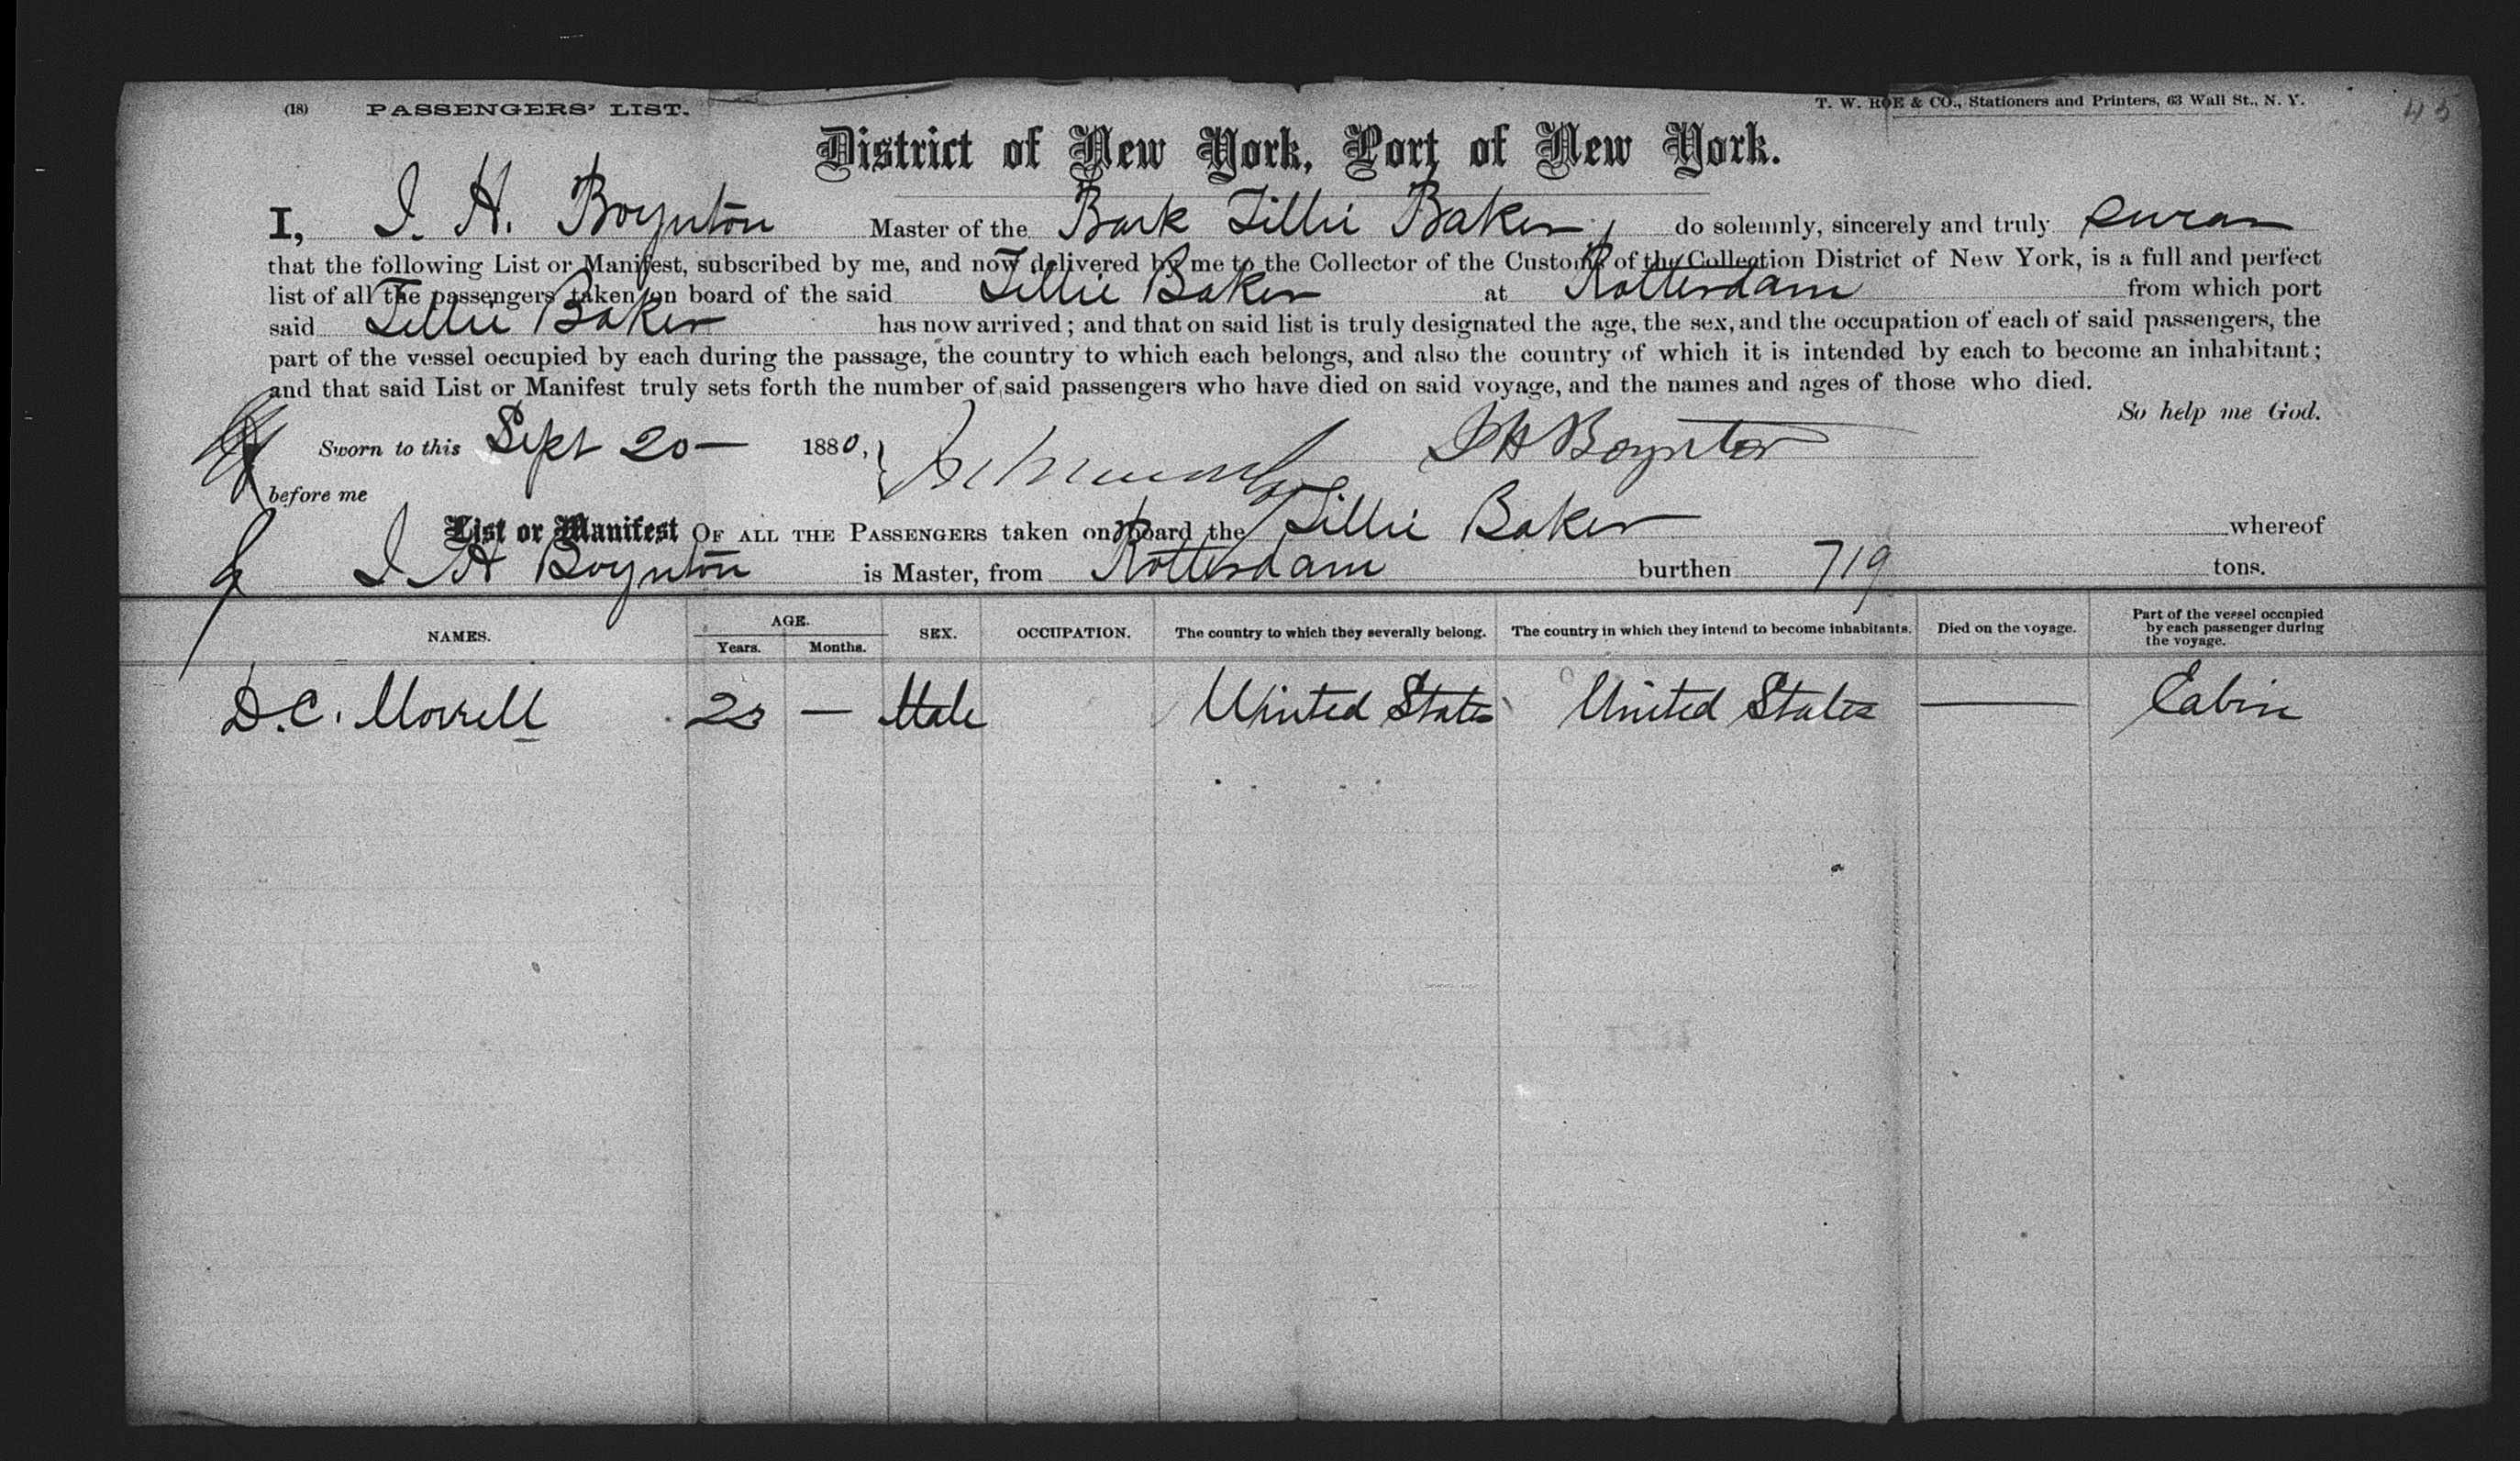 (18) PASSENGERS' LIST. T. W. ROE & CO., Stationers and Printers, 63 Wall St., N. Y. 45
District of New York, Port of New York.
I, I. H. Boynton Master of the Bark Tillie Baker, do solemnly, sincerely and truly swear
that the following List or Manifest, subscribed by me, and now delivered by me to the Collector of the Customs of the Collection District of New York, is a full and perfect
list of all the passengers taken on board of the said Tillie Baker at Rotterdam from which port
said Tillie Baker has now arrived; and that on said list is truly designated the age, the sex, and the occupation of each of said passengers, the
part of the vessel occupied by each during the passage, the country to which each belongs, and also the country of which it is intended by each to become an inhabitant;
and that said List or Manifest truly sets forth the number of said passengers who have died on said voyage, and the names and ages of those who died.
So help me God.
Sworn to this Sept 20 — 1880, I H Boynton
before me
List or Manifest OF ALL THE PASSENGERS taken on board the Tillie Baker whereof
I H Boynton is Master, from Rotterdam burthen 719 tons.
NAMES. AGE. Years. Months. SEX. OCCUPATION. The country to which they severally belong. The country in which they intend to become inhabitants. Died on the voyage. Part of the vessel occupied by each passenger during the voyage.
D. C. Morrell 23 — Male United States United States — Cabin